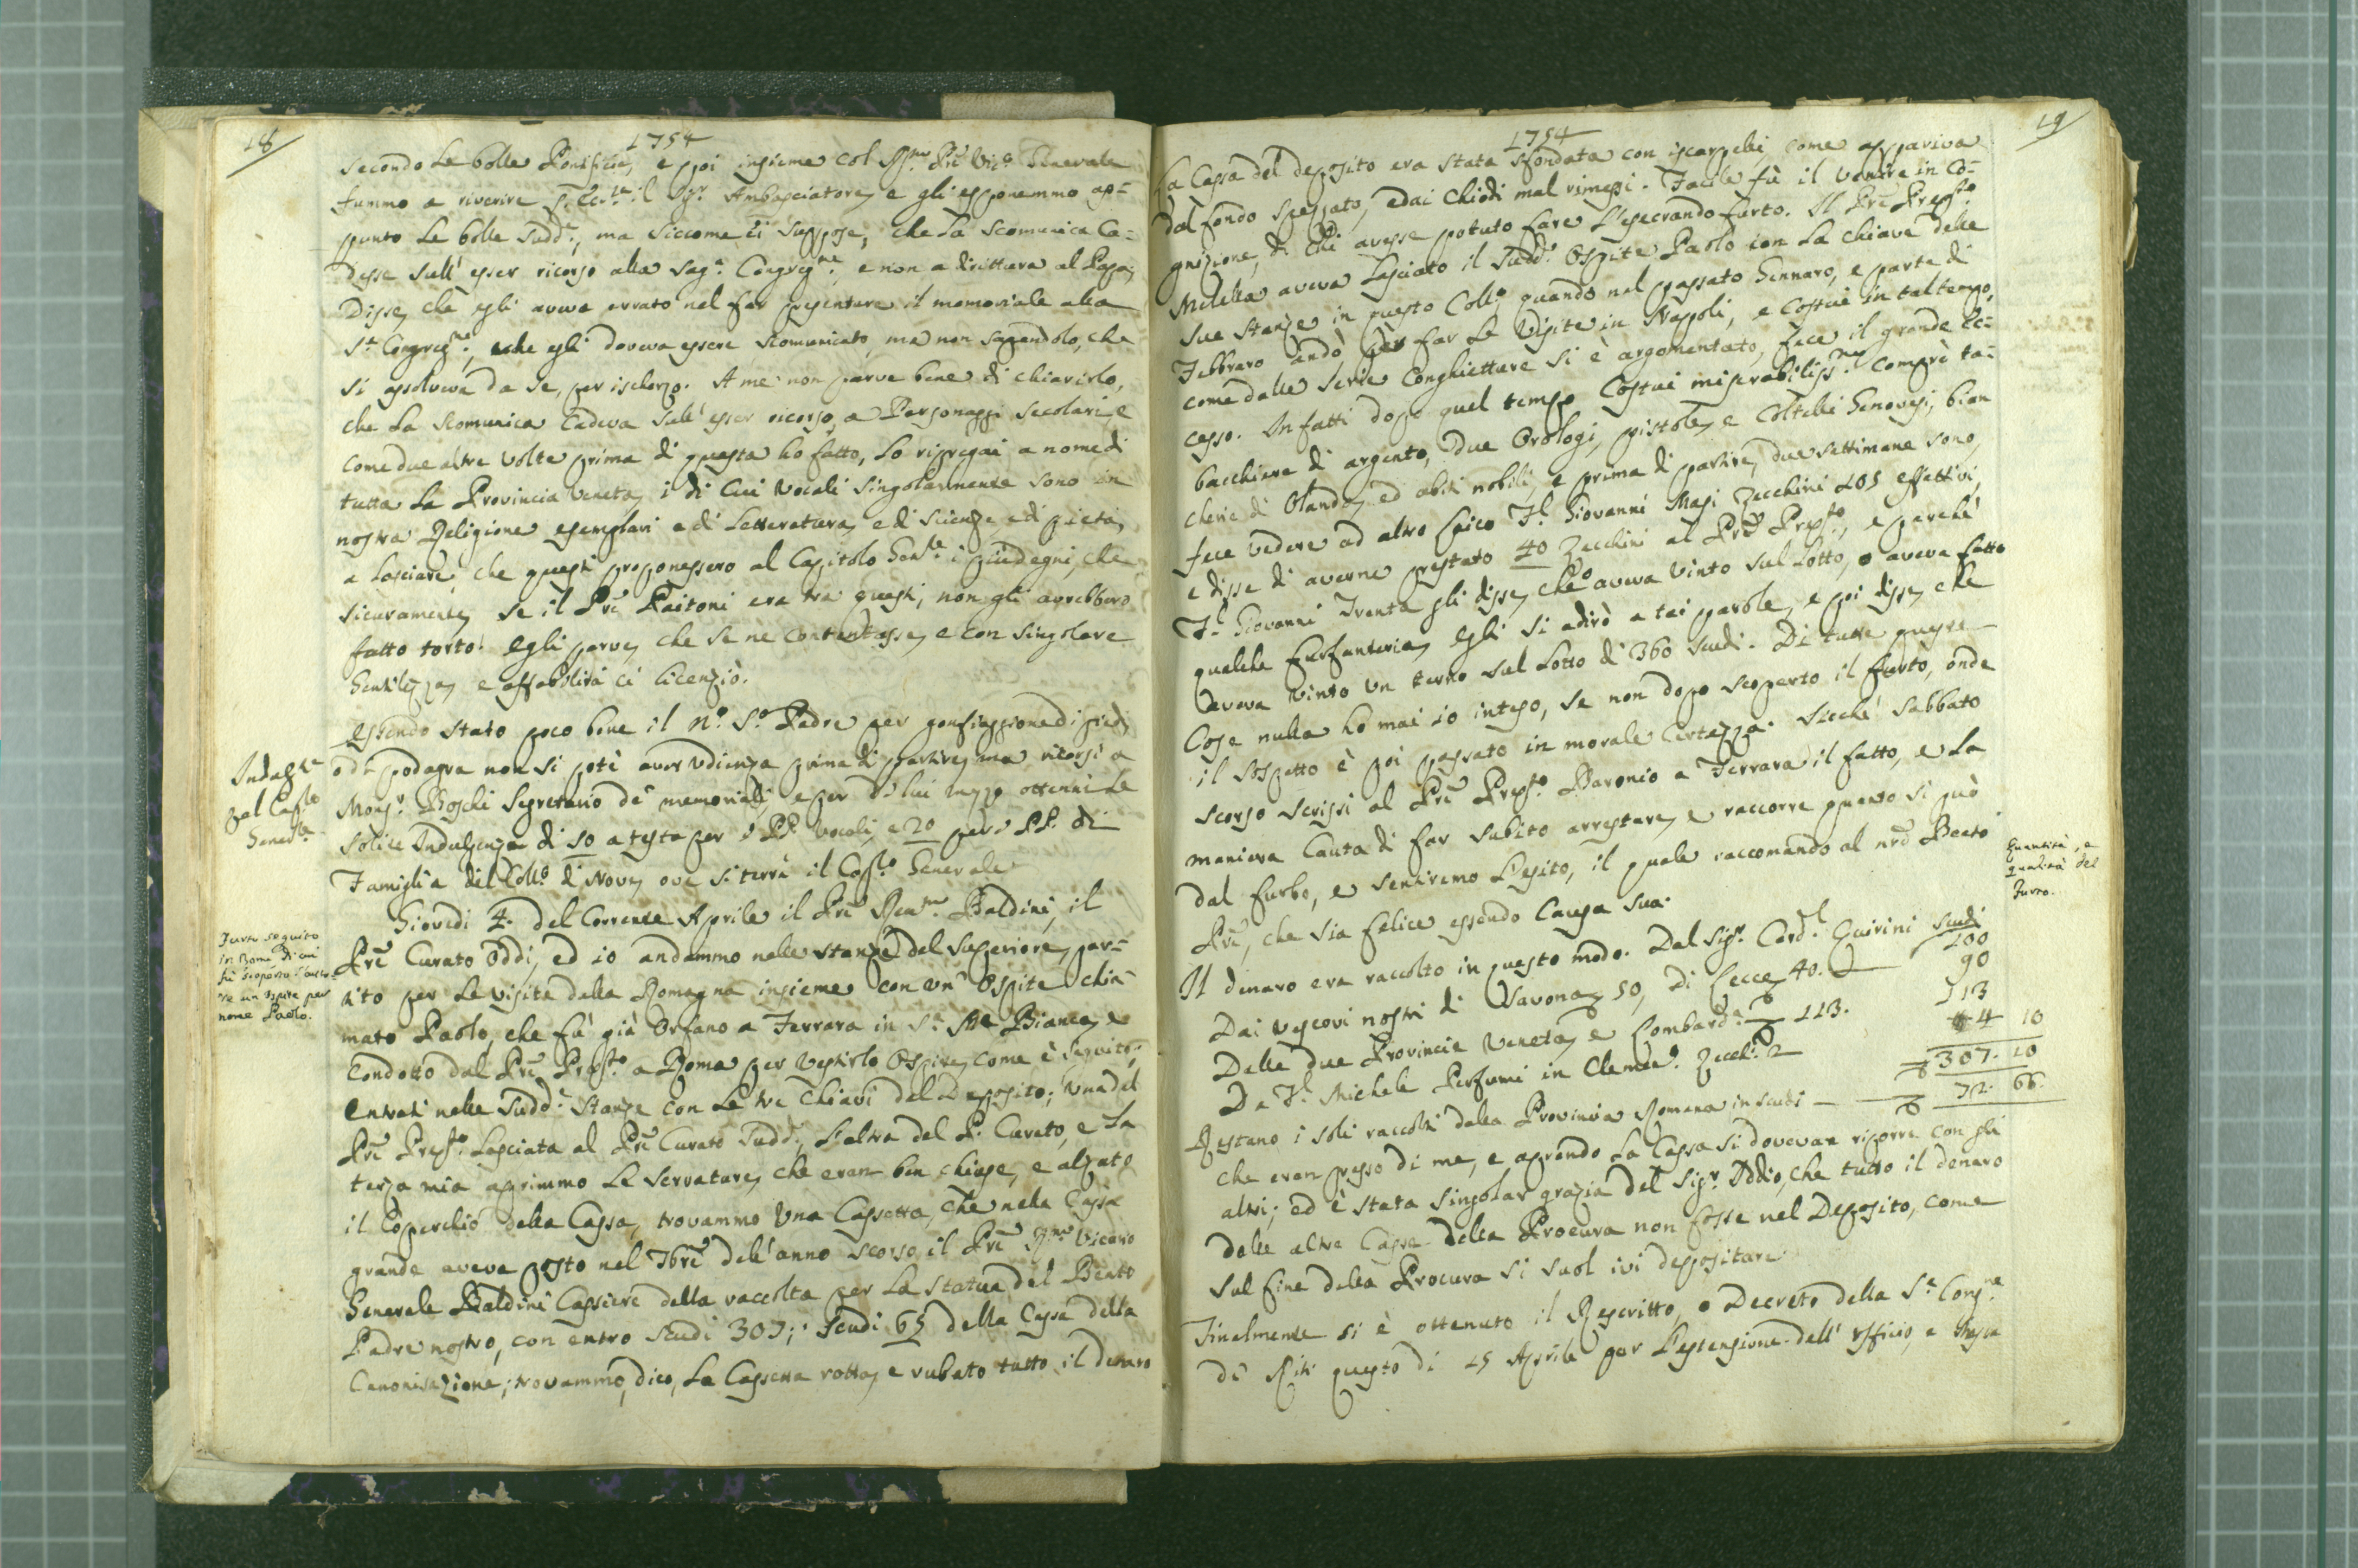 18
1754
secondo le bolle Pontificie, e poi insieme col Rmo Prē Vic.o Generale
fummo a riverire S. Ecc.za il Sigr. Ambasciatore, e gli esponemmo ap=
punto le bolle sudd.e, ma siccome ei suppose, che la scomunica ca=
desse sull' esser ricorso alla Sag.a Congreg.ne e non a dirittura al Papa,
Disse, che egli aveva errato nel far presentare il memoriale alla
S.a Congreg.ne, e che egli doveva essere scomunicato, ma non sapendolo, che
si assolveva da se, per ischerzo. A me non parve bene di chiarirlo,
che la scomunica cadeva sull' esser ricorso a Personaggi secolari, e
come due altre volte prima di questa ho fatto, lo ripregai a nome di
tutta la Provincia Veneta, i di cui Vocali singolarmente sono in
nostra Religione esemplari e di Letteratura, e di scienze e di pietà,
a lasciare, che questi proponessero al Capitolo Gen.le i più degni, che
sicuramente, se il Prē Paitoni era tra questi, non gli avrebbero
fatto torto. Egli parve, che se ne contentasse, e con singolare
Gentilezza, e affabilità ci licenziò.
Essendo stato poco bene il N.o S.o Padre per gonfiaggione di piedi,
o di podagra non si potè aver udienza prima di partire, ma ricorsi a
Indulg.ze
pel Cap.lo
Gener.le
Monsr. Boschi Segretario de' memoriali, e per di lui mezzo ottenni le
solite Indulgenze di 50 a testa per i PP. Vocali, e 20 per i PP. di
Famiglia del Coll.o di Novi, ove si terrà il Cap.lo Generale
Giovedì 4. del Corrente Aprile il Prē Rmo Baldini, il
Furto seguito
in Roma di cui
fù scoperto l'auto=
re un Ospite per
nome Paolo.
Prē Curato Oddi, ed io andammo nelle stanze del Superiore, par=
tito per le visite della Romagna insieme con un' Ospite chia=
mato Paolo, che fù già Orfano a Ferrara in S.a Ma Bianca, e
condotto dal Prē Prep.to a Roma per vestirlo Ospite, come è seguito;
Entrati nelle sudd.e stanze con le tre chiavi del Deposito; una del
Prē Prep.to lasciata al Prē Curato sudd.o, l'altra del P. Curato, e la
terza mia aprimmo le serrature, che eran ben chiuse, e alzato
il coperchio della Cassa, trovammo una Cassetta, che nella Cassa
grande aveva posto nel 7bre dell' anno scorso il Prē Rmo Vicario
Generale Baldini Cassiere della raccolta per la statua del Beato
Padre nostro, con entro scudi 307; scudi 65 della Cassa della
Canonisazione; trovammo, dico, la Cassetta rotta, e rubato tutto il denaro
19
1754
La Cassa del deposito era stata sfondata con iscarpelli, come appariva
dal fondo spezzato, e dai chiodi mal rimessi. Facile fù il venire in co=
gnizione, di chi avesse potuto fare l'esecrando furto. Il Prē Prep.to
Melella aveva lasciato il sudd.o Ospite Paolo con la chiave delle
sue stanze in questo Coll.o, quando nel passato Gennaro, e parte di
Febbraro andò per far le Visite in Nappoli, e costui in tal tempo,
come dalle serie conghietture si è argomentato, fece il grande ec=
cesso. In fatti dopo quel tempo costui miserabiliss.mo comprò ta=
bacchiere di argento, due Orologi, pistole, e coltelli Genovesi, bian
cherie di Olanda, ed abiti nobili, e prima di partire, due settimane sono,
fece vedere ad altro laico Fl. Giovanni Masi Zecchini 105 effettivi,
e disse di averne prestato 40 zecchini al Prē Prep.to, e perchè
Fl. Giovanni Trenta gli disse, che o aveva vinto sul Lotto, o aveva fatto
qualche furfanteria, egli si adirò a tai parole, e poi disse, che
aveva vinto un terno sul Lotto di 360 scudi. Di tutte queste
cose nulla ho mai io inteso, se non dopo scoperto il furto, onde
il sospetto è poi passato in morale certezza. Sicchè sabbato
scorso scrissi al Prē Prep.to Baronio a Ferrara il fatto, e la
maniera cauta di far subito arrestare, e raccorre quanto si può
dal furbo, e sentiremo l'esito, il quale raccomando al nrō Beato
Prē, che sia felice essendo Causa sua.
Quantità, e
qualità del
furto.
Il denaro era raccolto in questo modo. Dal Sigr. Card.l Quirini scudi 100
Dai Vescovi nostri di Savona, 50, di Lecce, 40. 90
Delle due Provincie Veneta, e Lombard.a 113. 113
Da Fl. Michele Perfumi in Clemen.o Zecch. 2 4 10
307. 10
Restano i soli raccolti dalla Provincia Romana in scudi 72. 66.
che eran presso di me, e aprendo la Cassa si dovevan riporre con gli
altri; ed è stata singolar grazia del Sigr. Iddio, che tutto il denaro
delle altre Casse della Procura non fosse nel Deposito, come
sul fine della Procura si suol ivi depositare.
Finalmente si è ottenuto il Rescritto, o Decreto della S.a Cong.ne
de' Riti questo dì 15 Aprile per l'estensione dell' Officio, e Messa